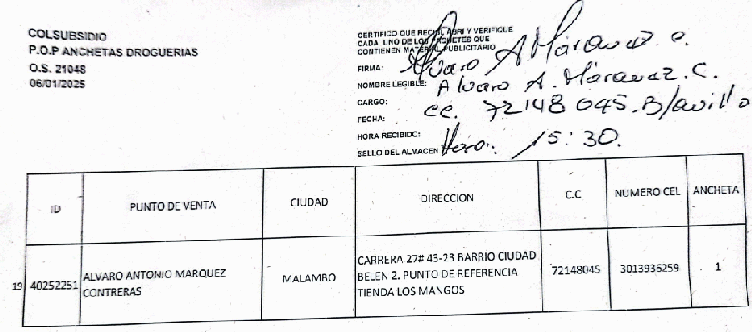 COLSUBSIDIO
P.O.P ANCHETAS DROGUERIAS
O.S. 21048
06/01/2025
CERTIFICO QUE RECIBI, ABRI Y VERIFIQUE
CADA UNO DE LOS PAQUETES QUE
CONTIENEN MATERIAL PUBLICITARIO
FIRMA: Alvaro A Márquez c.
NOMBRE LEGIBLE: Alvaro A. Márquez. C.
CARGO: cc. 72148045. B/quilla
FECHA:
HORA RECIBIDO: Hora: 15:30.
SELLO DEL ALMACEN
ID PUNTO DE VENTA CIUDAD DIRECCION C.C NUMERO CEL ANCHETA
19 40252251 ALVARO ANTONIO MARQUEZ CONTRERAS MALAMBO CARRERA 27# 43-23 BARRIO CIUDAD
BELEN 2. PUNTO DE REFERENCIA
TIENDA LOS MANGOS 72148045 3013936259 1